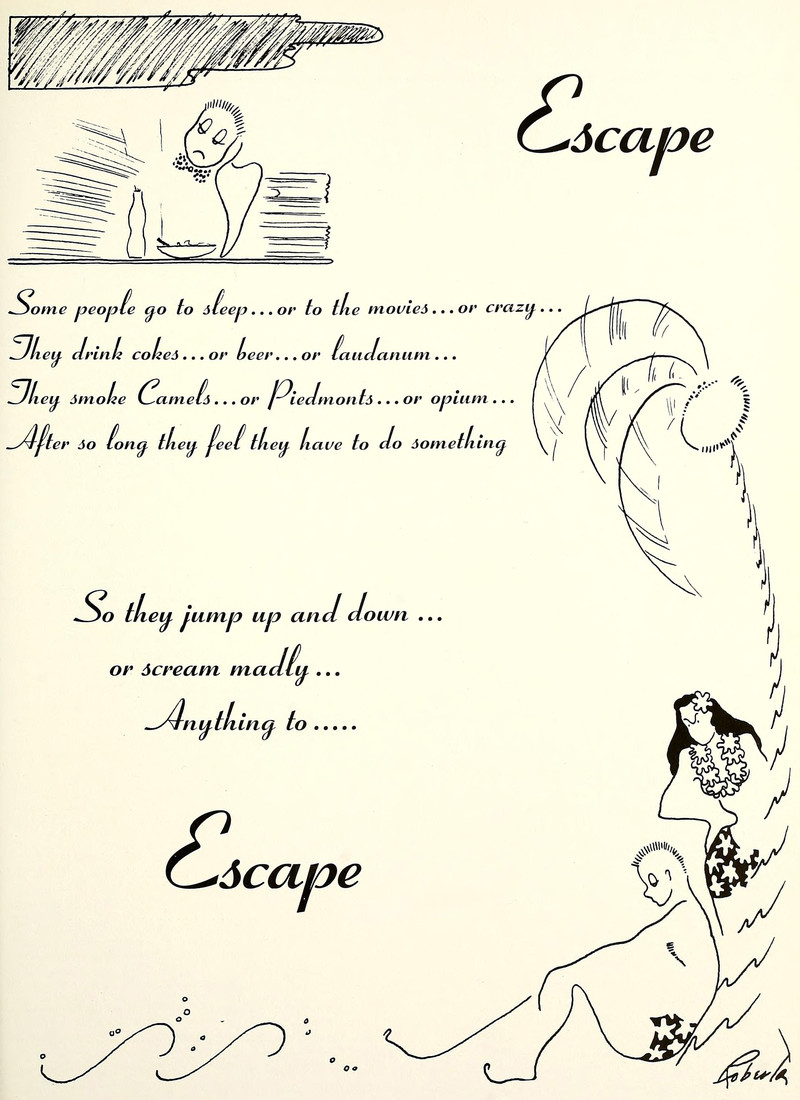 Escape
Some people go to sleep...or to the movies...or crazy...
They drink cokes...or beer...or laudanum...
They smoke Camels...or Piedmonts...or opium...
After so long they feel they have to do something
So they jump up and down ...
or scream madly ...
Anything to .....
Escape
Roberta